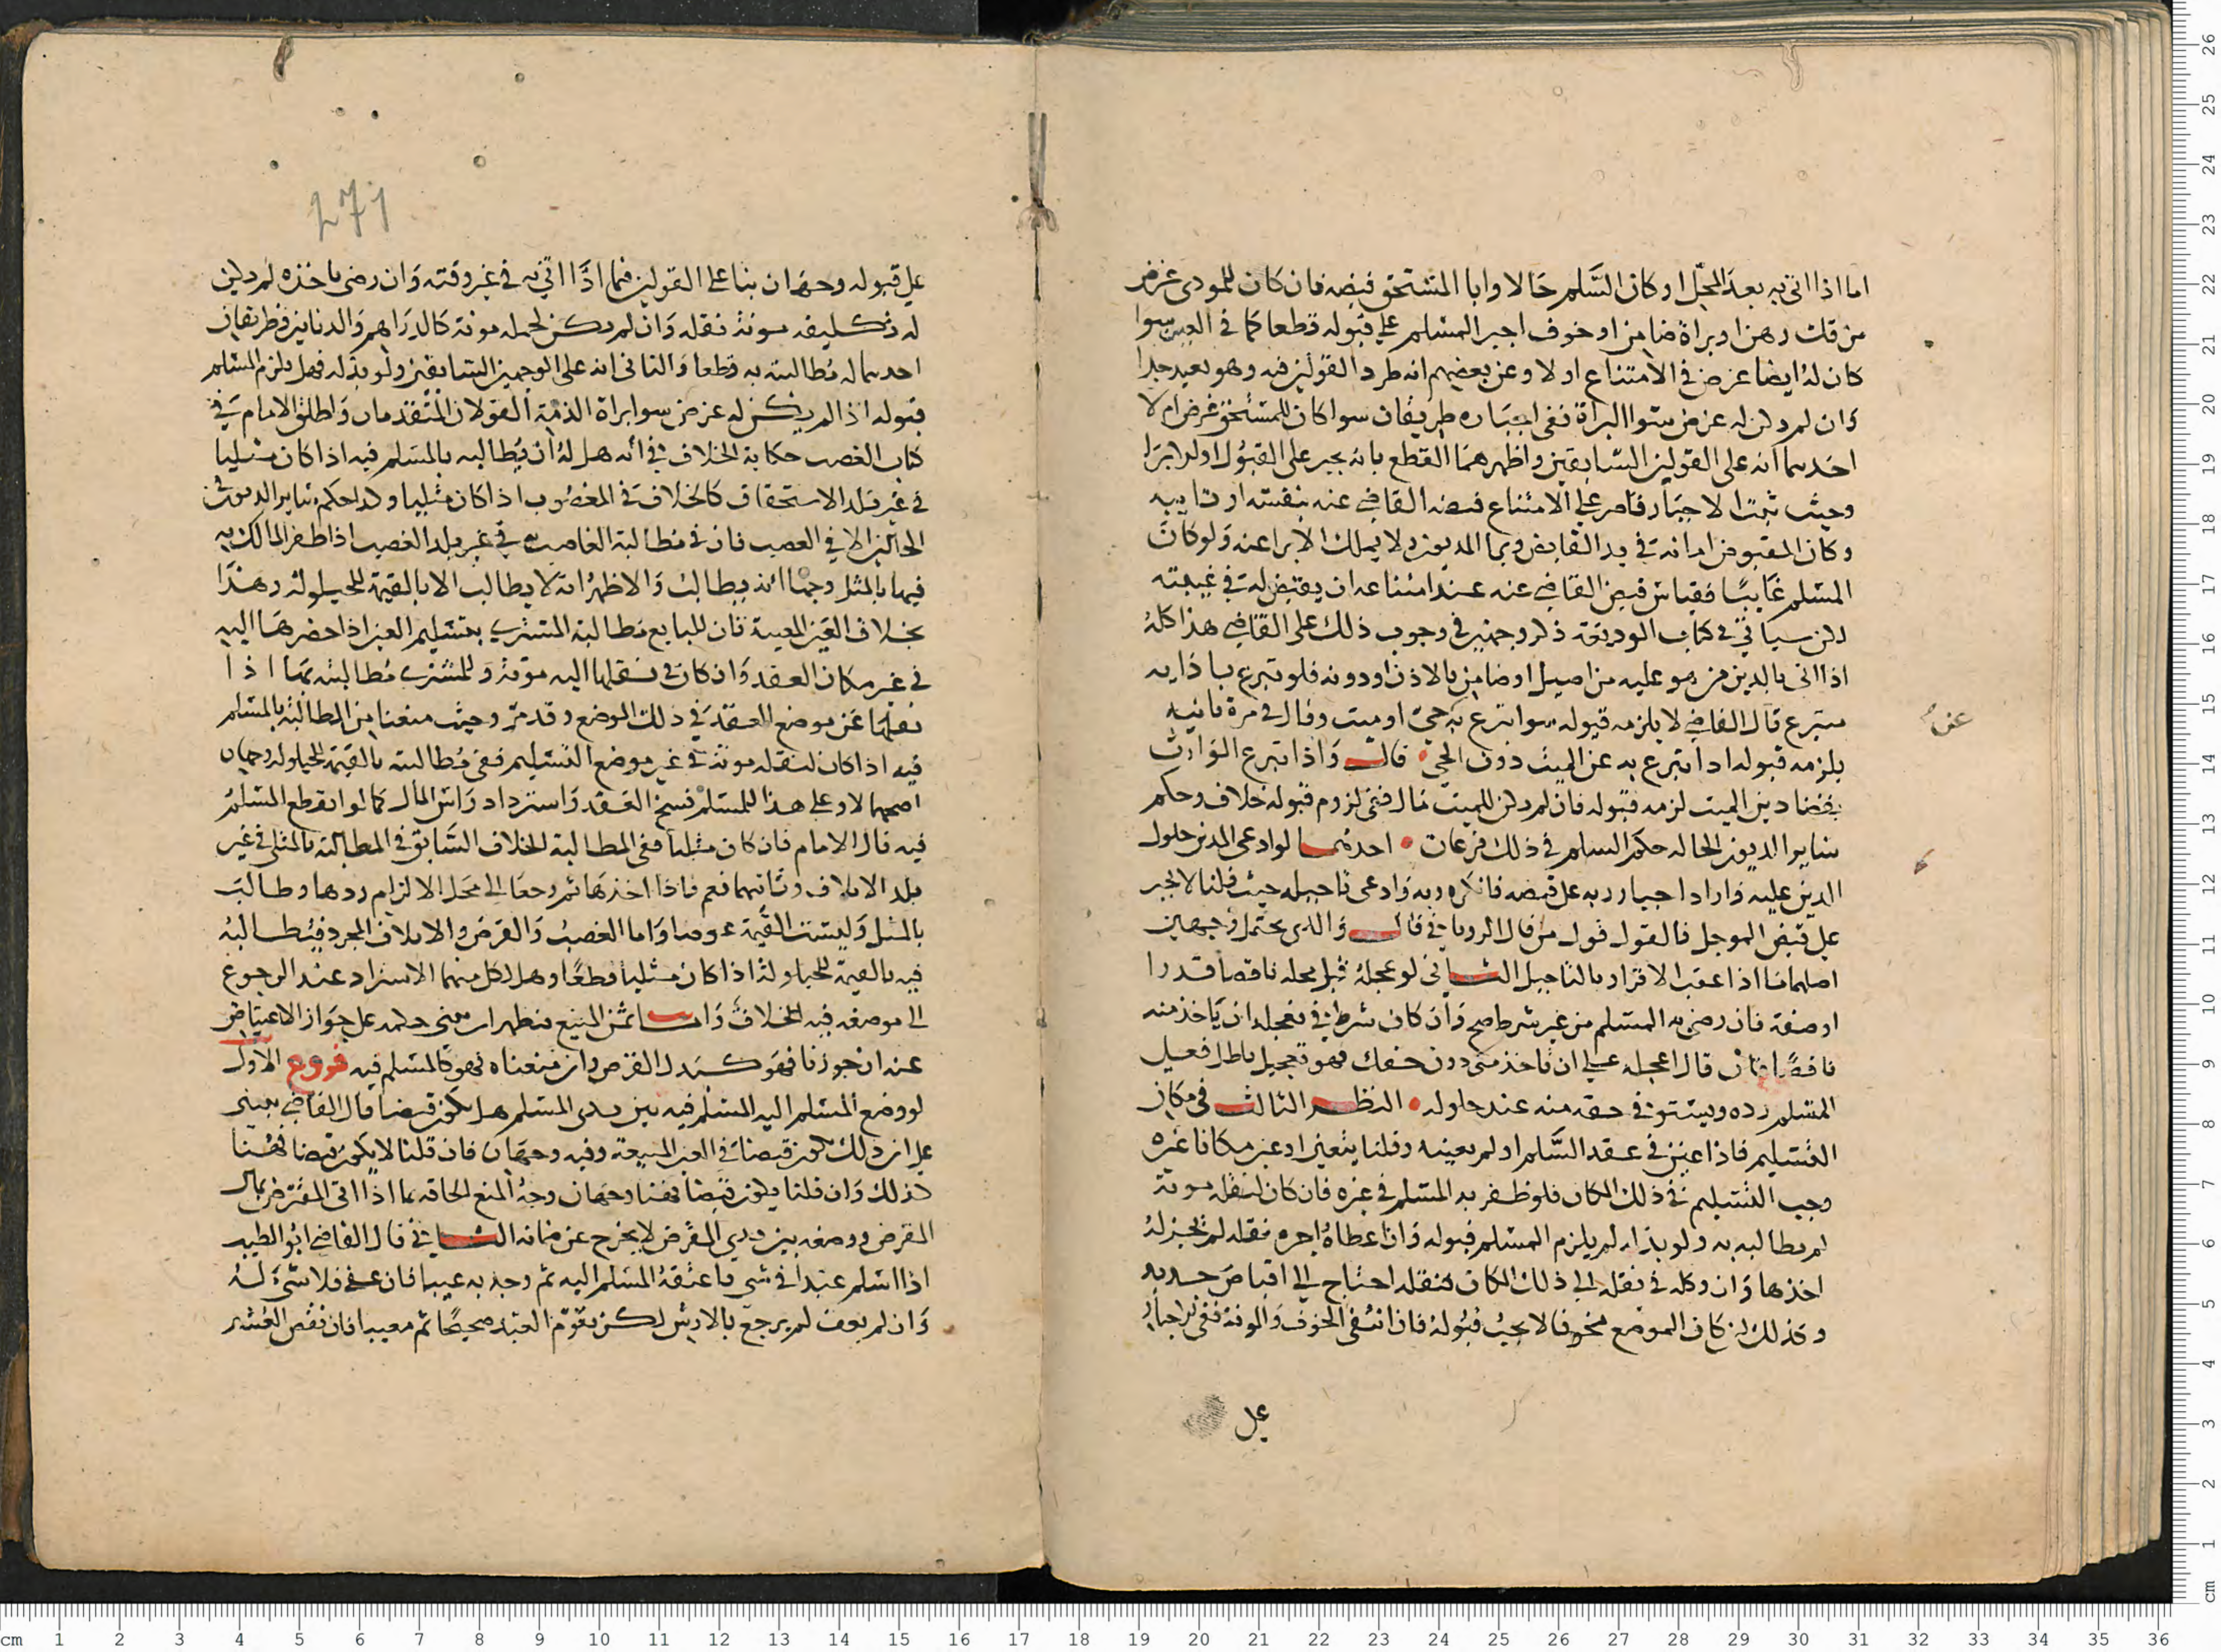 اما اذا اتى به بعد المحل او كان السلم حالا وابا المستحق قبضه فان كان للمودى غرض
من فك رهن او براة ضامن او خوف اجبر المسلم على قبوله قطعا كما في العبر سوا
كان له ايضا غرض في الامتناع او لا وعن بعضهم انه طرد القولين فيه وهو بعيد جدا
وان لم يكن له غرض سوا البراة ففى اجباره طريقان سوا كان للمستحق غرض ام لا
احدهما انه على القولين السابقين واظهرهما القطع بانه يجبر على القبول او الابرا
وحيث ثبت الاجبار فاصر على الامتناع قبضه القاضي عنه بنفسه او نايبه
وكان المقبوض امانة في يد القابض وبرا المديون ولا يملك الابرا عنه ولو كان
المسلم غايبا فقياس قبض القاضي عنه عند امتناعه ان يقبض له في غيبته
لكن سياتي في كتاب الوديعة ذكر وجهين في وجوب ذلك على القاضي هذا كله
اذا اتى بالدين من هو عليه من اصيل او ضامن بالاذن او دونه فلو تبرع باذايه
متبرع قال القاضي لا يلزمه قبوله سوا تبرع به عن حي او ميت وقال في مرة ثانيه
يلزمه قبوله اذا تبرع به عن الميت دون الحي قال واذا تبرع الوارث
بقضا دين الميت لزمه قبوله فان لم يكن للميت مال ففى لزوم قبوله خلاف وحكم
ساير الديون الحالة حكم السلم في ذلك فرعان احدهما لو ادعى المدين حلول
الدين عليه واراد اجبار ربه على قبضه فانكره ربه وادعى تاجيله حيث قلنا لا يجبر
على قبض الموجل فالقول قول من قال الروياني قال والذي يحتمل وجهين
اصلهما ما اذا اعقب الاقرار بالتاجيل الثاني لو عجله قبل محله ناقصا قدرا
او صفة فان رضى به المسلم من غير شرط صح وان كان شرط في تعجله ان ياخذ منه
ناقصا فان قال اعجله على ان تاخذ منى دون حقك فهو تعجيل باطل فعلى
المسلم رده ويستوفى حقه منه عند حلوله النظر الثالث في مكان
التسليم فاذا عين في عقد السلم او لم يعينه وقلنا يتعين او عين مكانا غيره
وجب التسليم في ذلك المكان فلو ظفر به المسلم في غيره فان كان لنقله مونة
لم يطالبه به ولو بذله لم يلزم المسلم قبوله وان اعطاه اجرة نقله لم يجز له
اخذها وان وكله في نقله الى ذلك المكان لنقله احتاج الى اقباض جديد
وكذلك ان كان الموضع مخوفا لا يجب قبوله فان انتفى الخوف والمونة ففى اجباره
على
عن
271
على قبوله وجهان بنا على القولين فيما اذا اتى به في غير وقته وان رضى باخذه لم يكن
له تكليفه مونة نقله وان لم يكن لحمله مونة كالدراهم والدنانير فطريقان
احدهما له مطالبته به قطعا والثاني انه على الوجهين السابقين ولو بذله فهل يلزم المسلم
قبوله اذا لم يكن له غرض سوا براة الذمة القولان المتقدمان واطلق الامام في
كتاب الغصب حكاية الخلاف في انه هل له ان يطالبه بالمسلم فيه اذا كان مثليا
في غير بلد الاستحقاق كالخلاف في المغصوب اذا كان مثليا وكذا حكم ساير الديون في
الحالين الا في الغصب فان في مطالبة الغاصب في غير بلد الغصب اذا ظفر المالك به
فيها بالمثل وجها انه يطالب والاظهر انه لا يطالب الا بالقيمة للحيلولة وهذا
بخلاف العين المعيبة فان للبايع مطالبة المشتري بتسليم العين اذا احضرها اليه
في غير مكان العقد وان كان في نقلها اليه مونة وللمشتري مطالبته بها اذا
نقلها عن موضع العقد في ذلك الموضع وقد مر وحيث منعنا من المطالبة بالمسلم
فيه اذا كان لنقله مونة في غير موضع التسليم ففى مطالبته بالقيمة للحيلولة وجهان
اصحهما لا وعلى هذا للمسلم فسخ العقد واسترداد راس المال كما لو انقطع المسلم
فيه قال الامام فان كان مثليا ففى المطالبة الخلاف السابق في المطالبة بالمثل في غير
بلد الاتلاف وثانيهما نعم فاذا اخذها ثم رجعا الى محل الالزام ردها وطالب
بالمثل وليست القيمة عوضا واما الغصب والقرض والاتلاف المجرد فيطالبه
فيه بالقيمة للحيلولة اذا كان مثليا قطعا وهل لكل منهما الاسترداد عند الرجوع
الى موضعه فيه الخلاف واما ثمن المبيع فيظهر ان يبنى حكمه على جواز الاعتياض
عنه ان جوزنا فهو كبدل القرض وان منعناه فهو كالمسلم فيه فروع الاول
لو وضع المسلم اليه المسلم فيه بين يدى المسلم هل يكون قبضا قال القاضي يبنى
على ان ذلك يكون قبضا في العين المبيعة وفيه وجهان فان قلنا لا يكون قبضا فهنا
كذلك وان قلنا يكون قبضا فهنا وجهان وجه المنع الحاقه بما اذا اتى المقترض بمال
القرض ووضعه بين يدى المقرض لا يخرج عن ضمانه الثاني قال القاضي ابو الطيب
اذا اسلم عبدا في شي فاعتقه المسلم اليه ثم وجد به عيبا فان عفى فلا شيء له
وان لم يعف لم يرجع بالارش لكن يقوم العبد صحيحا ثم معيبا فان نقص العشر